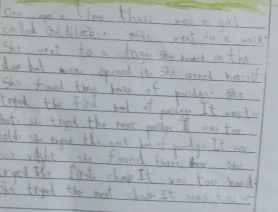 Once upon a time there was a girl
called Goldilocks. she went for a walk.
She went to a she on the
door but opend it. She opened herself
She found three bowls of poridge. she
tryed the first bowl of poridge It was to
hot. she tryed the next poridge. It was too
cold. she tryed the next bowl of poridge It was
just right. she found three She
tryed the first It was too hard.
She tryed the next It was too